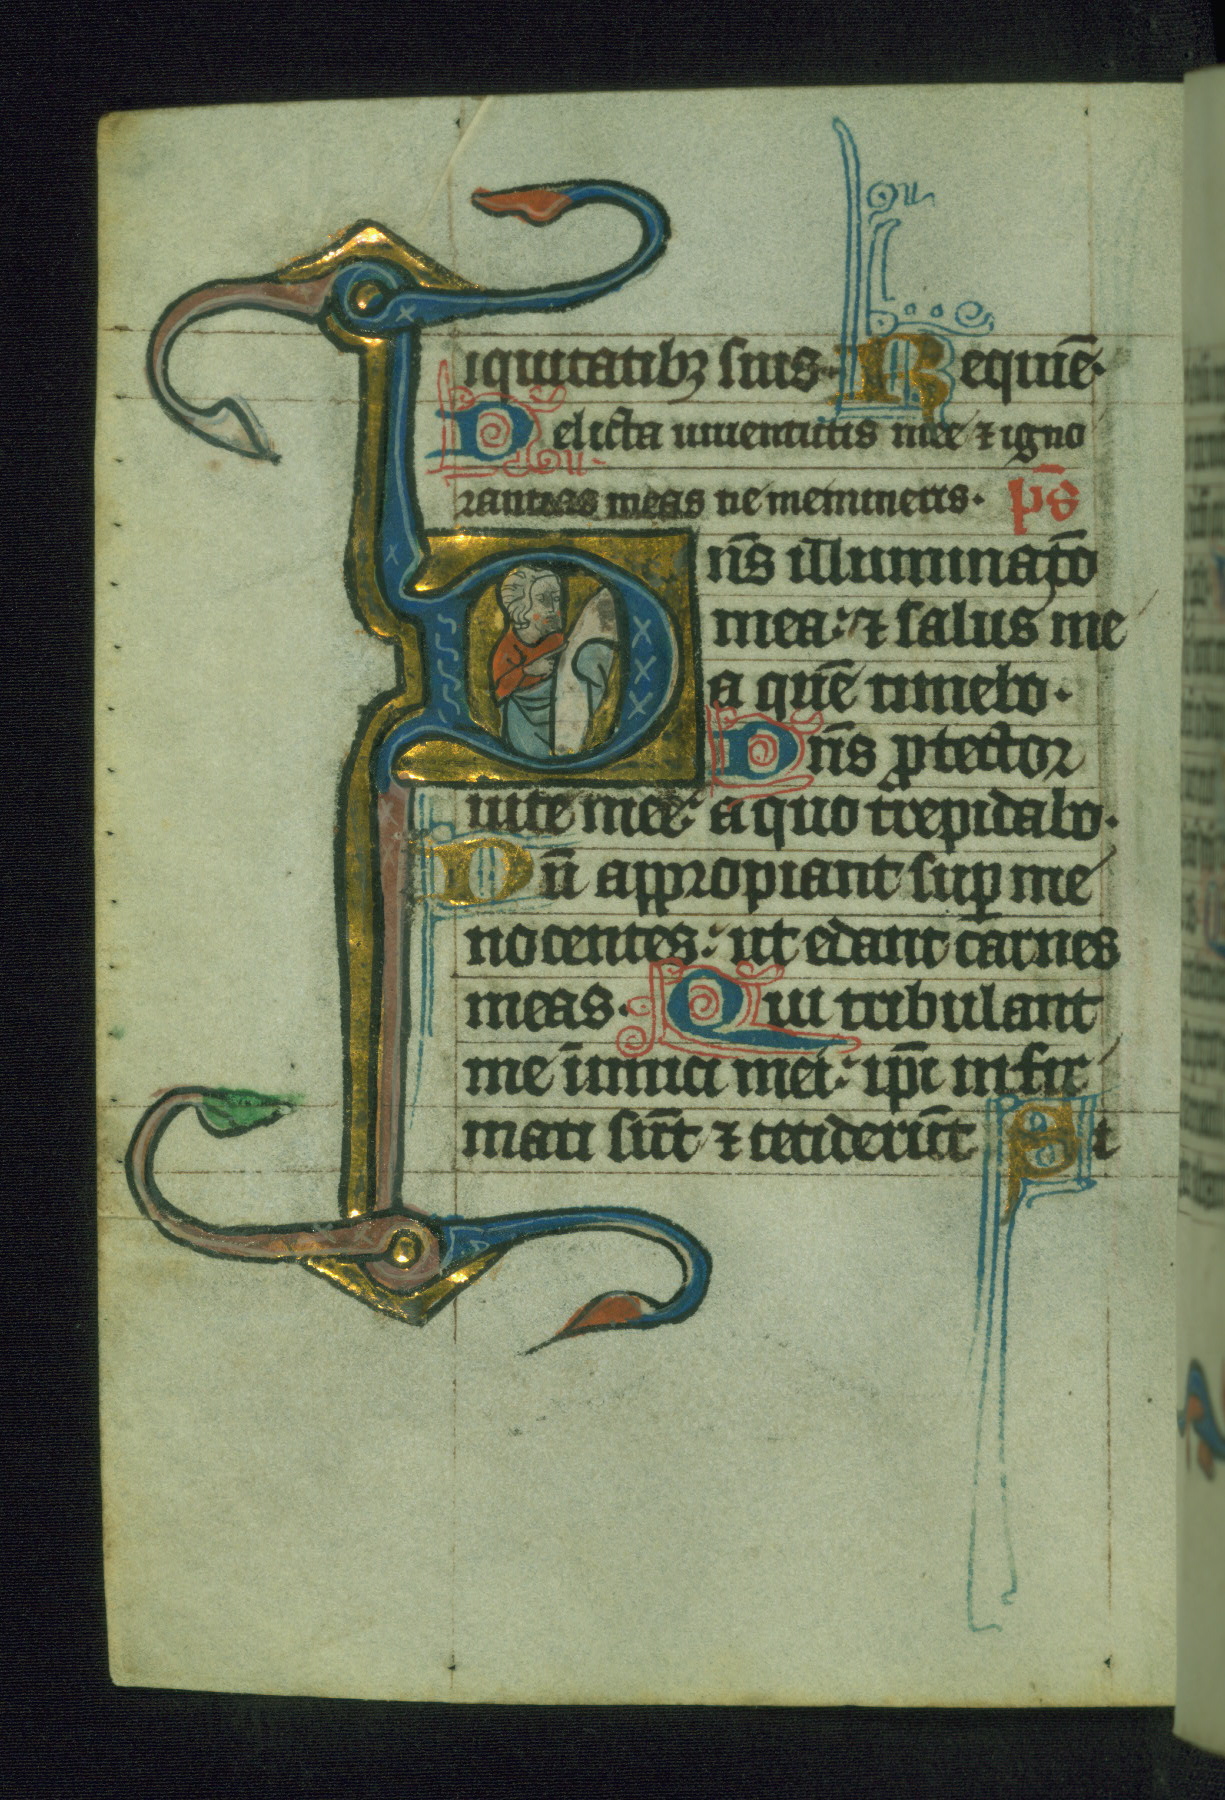 iquitatibꝫ suis. Requiē.
Delicta iuuentutis mee ⁊ igno
rantias meas ne memineris. p̄s
Dn̄s illuminatō
mea: ⁊ salus me
a quē timebo.
Dn̄s ꝓtector
uite mee: a quo trepidabo.
Dū appropiant suꝑ me
nocentes: ut edant carnes
meas. Qui tribulant
me īimici mei: ip̄i infir
mati sūt ⁊ ceciderūt Si